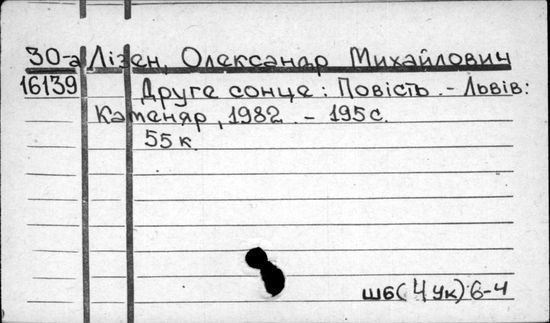 30-а Лізен, Олександр Михайлович
16139 Друге сонце : Повість. - Львів:
Каменяр, 1982. - 195с.
55к.
шб(4Ук)6-4